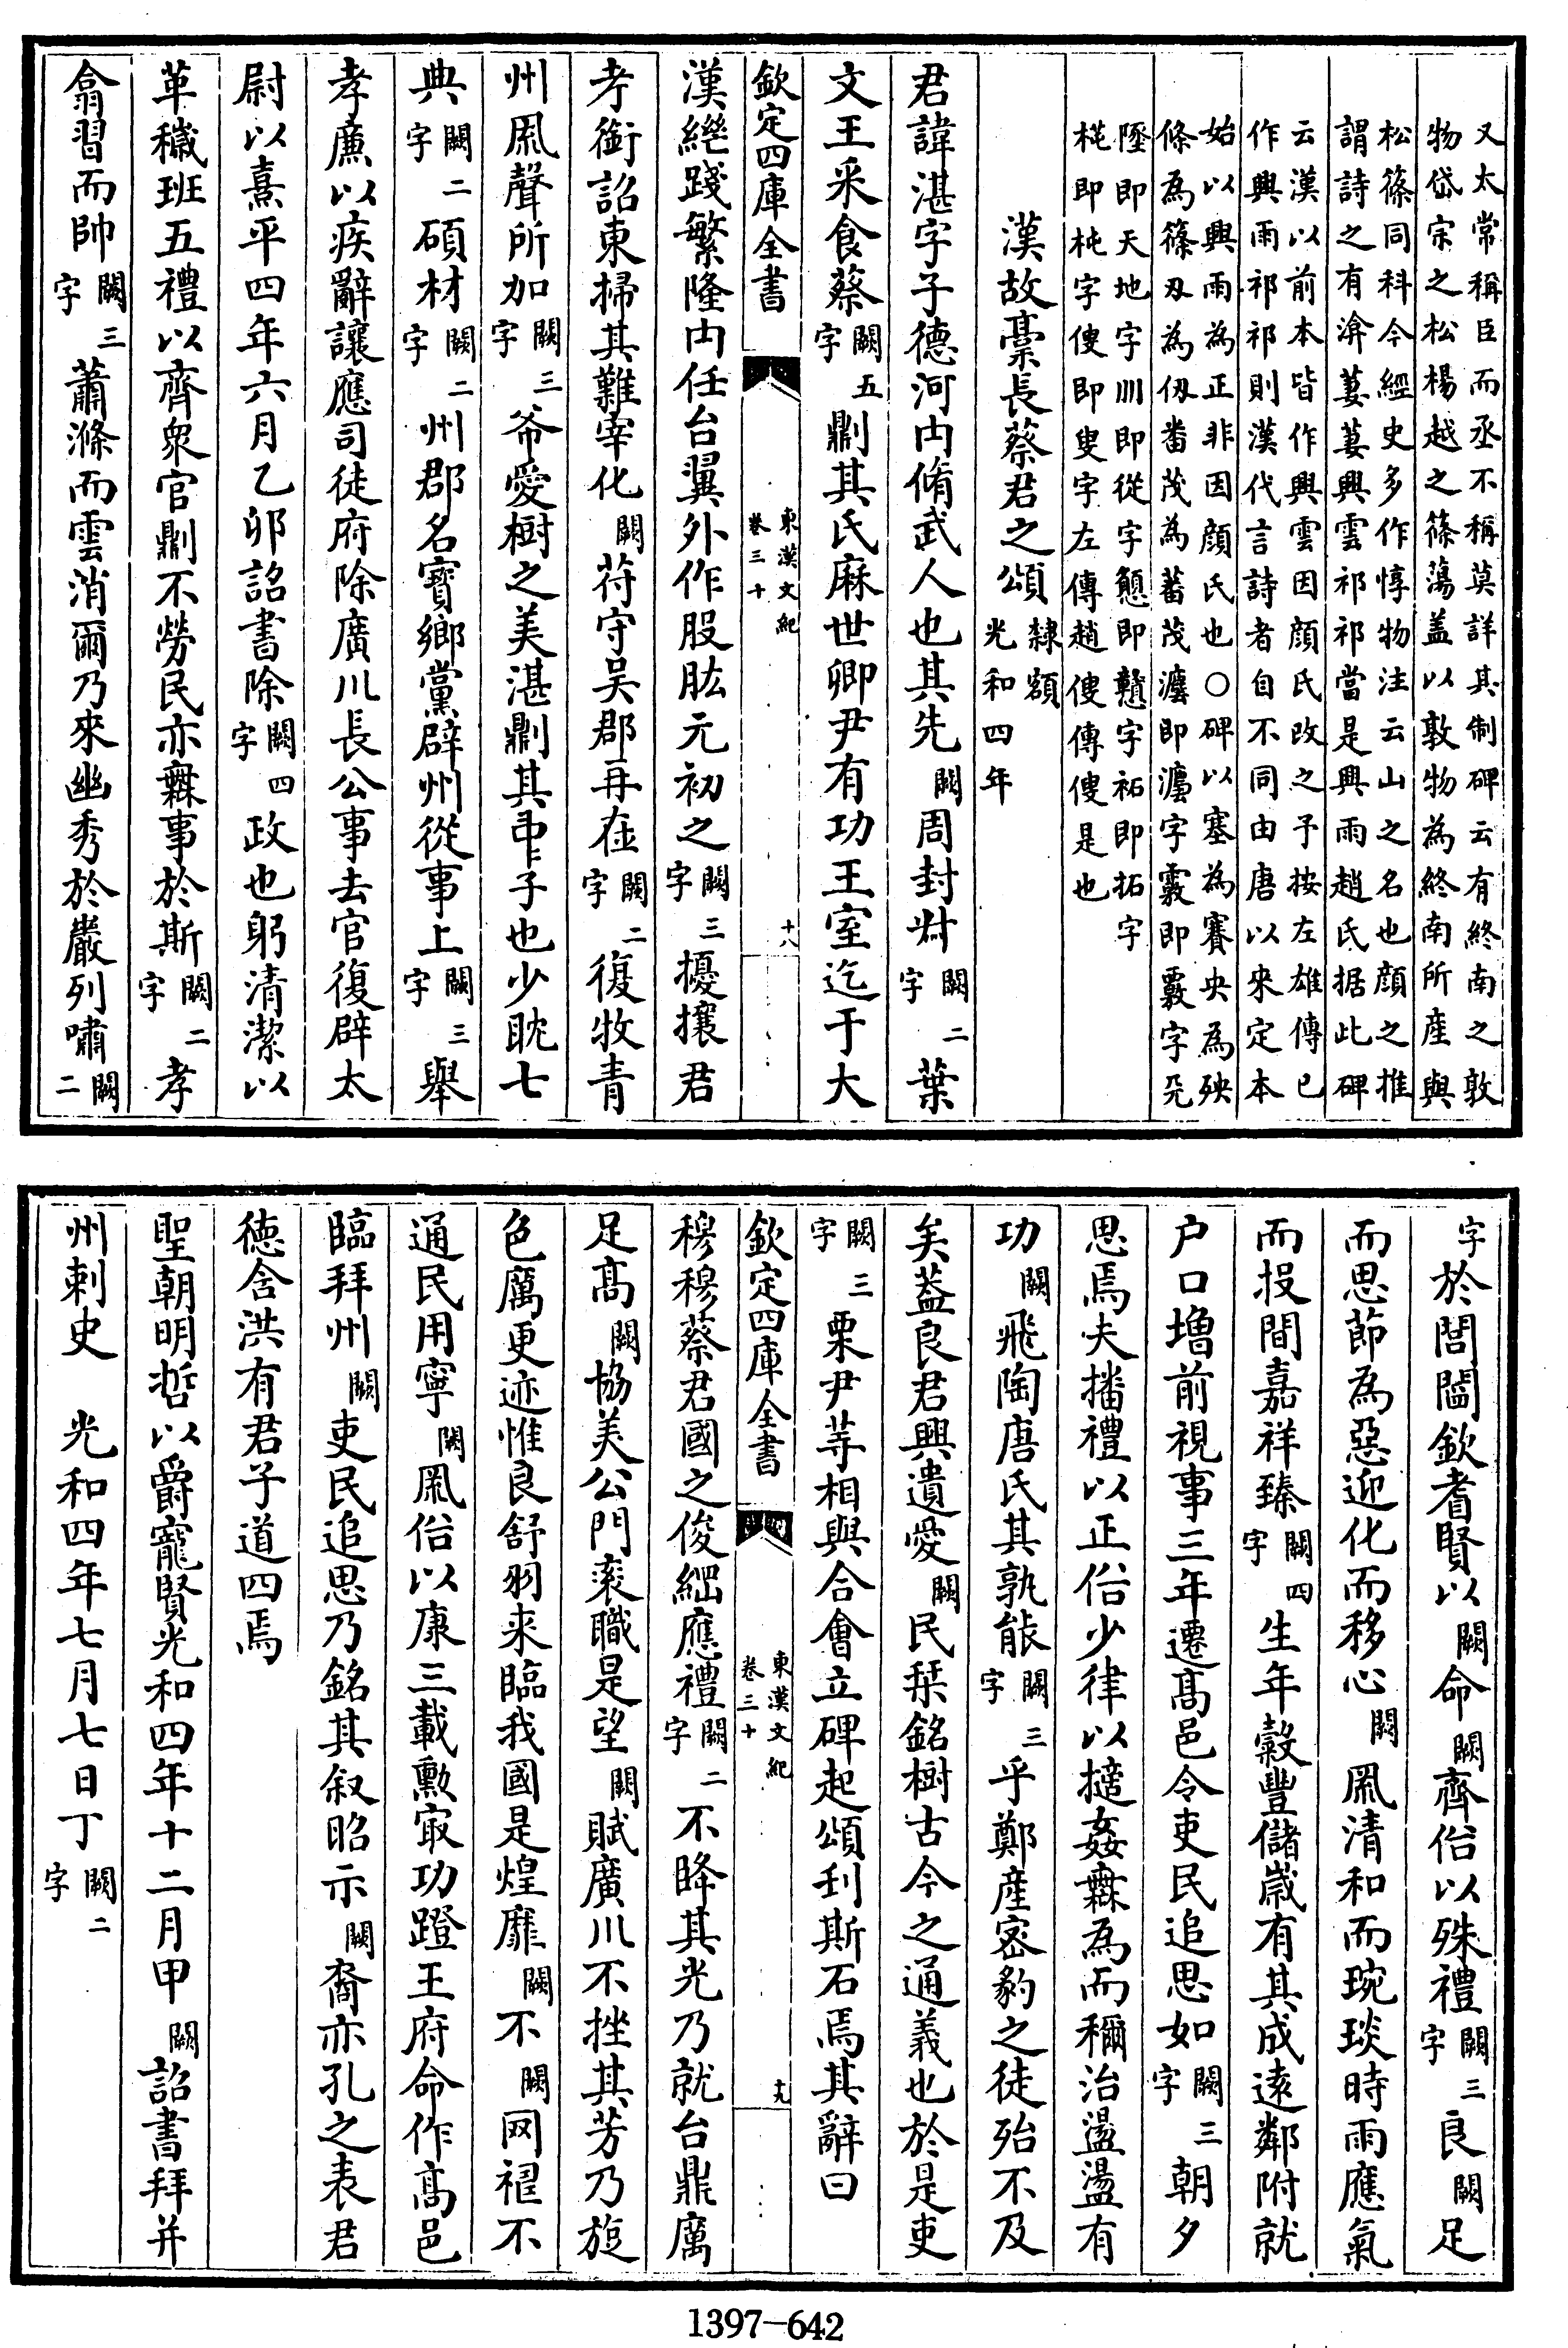 又太常稱臣而丞不稱莫詳其制碑云有終南之敦
物岱宗之松楊越之篠蕩盖以敦物為終南所產與
松篠同科今經史多作惇物注云山之名也顔之推
謂詩之有渰萋萋興雲祁祁當是興雨趙氏据此碑
云漢以前本皆作興雲因顔氏改之予按左雄傳已
作興雨祁祁則漢代言詩者自不同由唐以來定本
始以興雨為正非因顔氏也○碑以塞為賽央為殃
條為篠刄為仭畨茂為蕃茂瀍即瀍字霿即霧字旡
陸即天地字川即從字戇即戇字祏即拓字
枆即杶字傁即叟字左傳趙傁傳傁是也
漢故稾長蔡君之頌隸額光和四年
君諱湛字子德河内脩武人也其先闕周封叔闕二字葉
文王采食蔡闕五字劘其氏厤世卿尹有功王室迄于大
欽定四庫全書 東漢文紀 卷三十 十八
漢繼踐繁隆内任台翼外作股肱元初之闕三字擾攘君
考銜詔東掃其難宰化闕苻守吴郡再在闕二字復牧青
州凮聲所加闕三字斧愛樹之美湛劘其中子也少耽七
典闕二字碩材闕二字州郡名寳鄉黨辟州從事上闕三字舉
孝亷以疾辭讓應司徒府除廣川長公事去官復辟太
尉以熹平四年六月乙卯詔書除闕四字政也躬清潔以
革穢班五禮以齊衆官劘不勞民亦霖事於斯闕二字孝
翕習而帥闕三字蕭滌而雲消爾乃來幽秀於嚴列嘯闕二
字於閭闔欽耆賢以闕命闕齊俗以殊禮闕三字良闕足
而思節為惡迎化而移心闕凮清和而琬琰時雨應氣
而投間嘉祥臻闕四字生年穀豐儲歲有其成遠鄰附就
户口增前視事三年遷髙邑令吏民追思如闕三字朝夕
思焉夫播禮以正俗少律以擿姦霖為而穪治盪盪有
功闕飛陶唐氏其孰能闕三字乎鄭産宻豹之徒殆不及
矣葢良君興遺愛闕民栞銘樹古今之通義也於是吏
闕三字栗尹等相與合會立碑起頌刋斯石焉其辭曰
欽定四庫全書 東漢文紀 卷三十 十九
穆穆蔡君國之俊縚應禮闕二字不眸其光乃就台鼎厲
足髙闕協美公門衮職是望闕賦廣川不挫其芳乃旋
色厲更迹惟良舒羽来臨我國是煌靡闕不闕网裡不
通民用寧闕凮俗以康三載勲冣功蹬王府命作髙邑
臨拜州闕吏民追思乃銘其叙昭示闕裔亦孔之表君
徳含洪有君子道四焉
聖朝明哲以爵寵賢光和四年十二月甲闕詔書拜并
州刺史 光和四年七月七日丁闕二字
1397—642